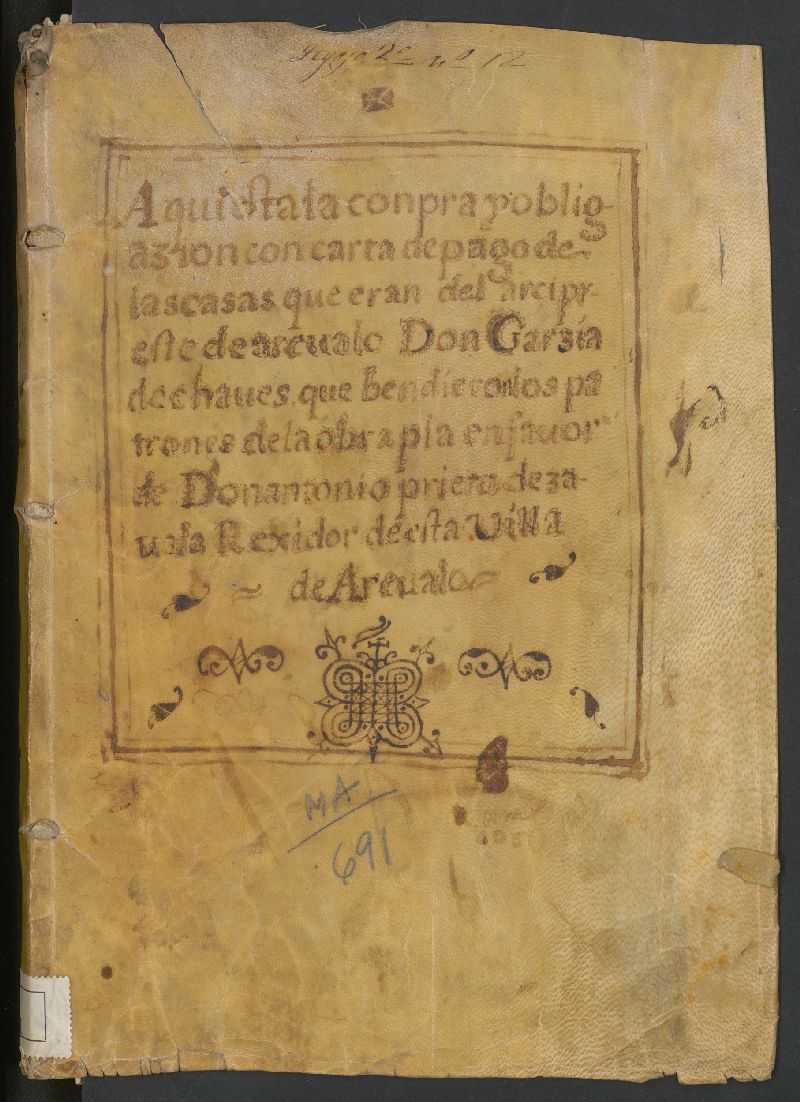 Legajo 2º nº 12
Aqui esta la conpra y oblig-
azion con carta de pago de-
las casas que eran del arcipr-
este de arcualo Don Garzia
de chaues que bendieron los pa
trones de la obra pia en fauor
de Don antonio prieto de za-
uala Rexidor de esta Villa
de Areualo
MA
691